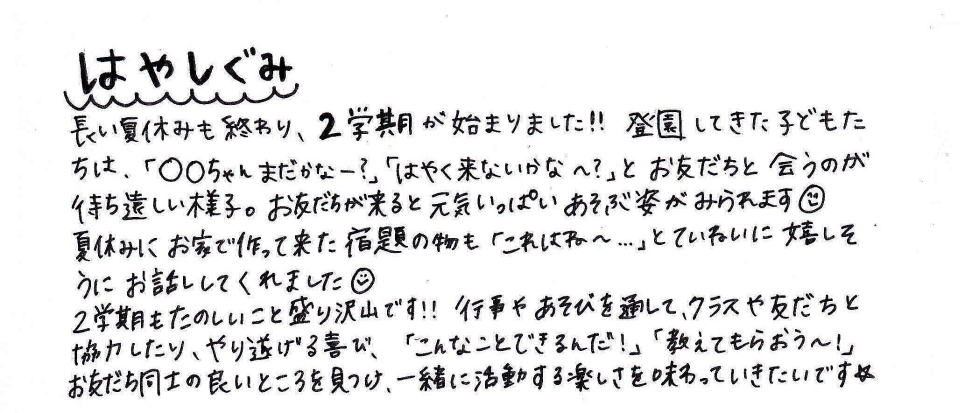 はやしぐみ
長い夏休みも終わり、2学期が始まりました!! 登園してきた子どもた
ちは、「〇〇ちゃんまだかなー?」「はやく来ないかな～?」と お友だちと 会うのが
待ち遠しい様子。お友だちが来ると元気いっぱい あそぶ姿が みられます☺
夏休みに お家で作って来た 宿題の物も「これはね～…」とていねいに 嬉しそ
うに お話ししてくれました☺
2学期もたのしいこと盛り沢山です!! 行事や あそびを通して、クラスや友だちと
協力したり、やり遂げる喜び、「こんなことできるんだ!」「教えてもらおう～!」
お友だち同士の良いところを見つけ、一緒に活動する楽しさを味わっていきたいです☆